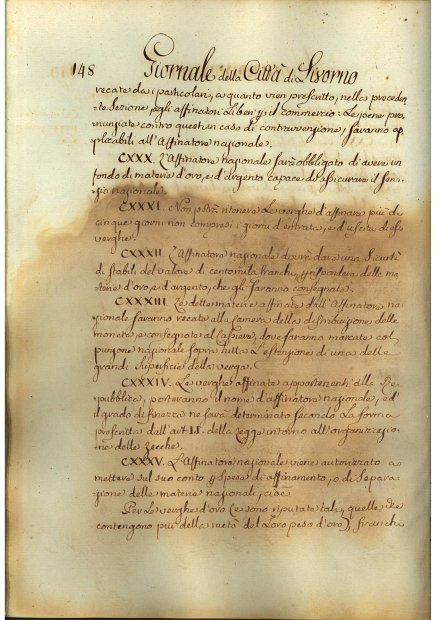 148 Giornale della Città di Livorno
recate dai particolari, a quanto vien prescritto, nella preceden-
te Sezione, pegli affinatori Liberi pl il commercio: Le pene pro-
nunziate contro questi in caso di contravvenzione, saranno ap-
plicabili all'Affinatore nazionale.
CXXX. L'Affinatore nazionale sarà obbligato di avere un
fondo di materie d'oro, e d'argento capace di assicurare il Servi-
zio nazionale.
CXXXI. Non potrà ritenere Le verghe d'affinare più di
cinque giorni non compresi i giorni d'entrata, e d'uscita di esse
verghe.
CXXXII. L'Affinatore nazionale dovrà dare una Sicurtà
di stabili del valore di centomila franchi, rispondere delle ma-
terie d'oro, e d'argento, che gli saranno consegnate.
CXXXIII. Le dette materie affinate dall'Affinatore na-
zionale saranno recate alla Camera della distribuzione delle
monete, e consegnate al Cassiere, dove saranno marcate col
punzone nazionale sopra tutta L'estenzione di una delle
grandi Superficie della verga.
CXXXIV. Le verghe affinate appartenenti alla Re-
pubblica, porteranno il nome d'affinatore nazionale, ed
il grado di finezza ne sarà determinato secondo La forma
prescritta dall'art. della Legge intorno all'organizzazio-
ne delle Zecche.
CXXXV. L'Affinatore nazionale viene autorizzato a
mettere sul suo conto Spese di affinamento, o di Separa-
zione delle materie nazionali, cioè
Per Le verghe d'oro (e sono riputate tali, quelle che
contengono più della metà del Loro peso d'oro), franchi